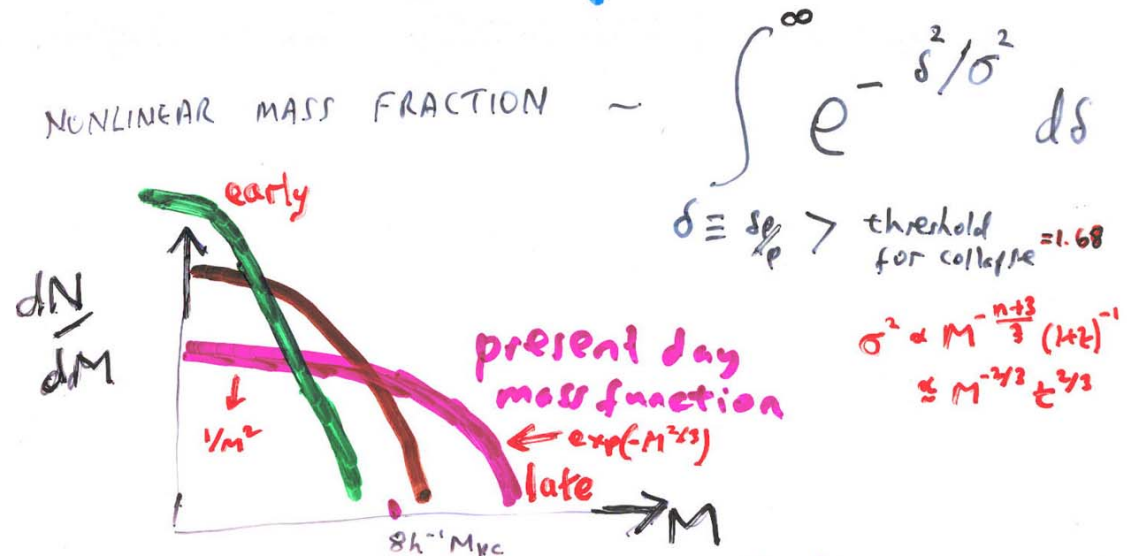 ∞
NONLINEAR MASS FRACTION ~ ∫ e^{- δ²/σ²} dδ
δ ≡ δρ/ρ > threshold for collapse =1.68
early
dN/dM
σ² ∝ M^{-(n+3)/3} (1+z)^{-1}
≈ M^{-2/3} t^{2/3}
present day
mass function
1/M²
← exp(-M^{2/3})
late
M
8h⁻¹ Mpc